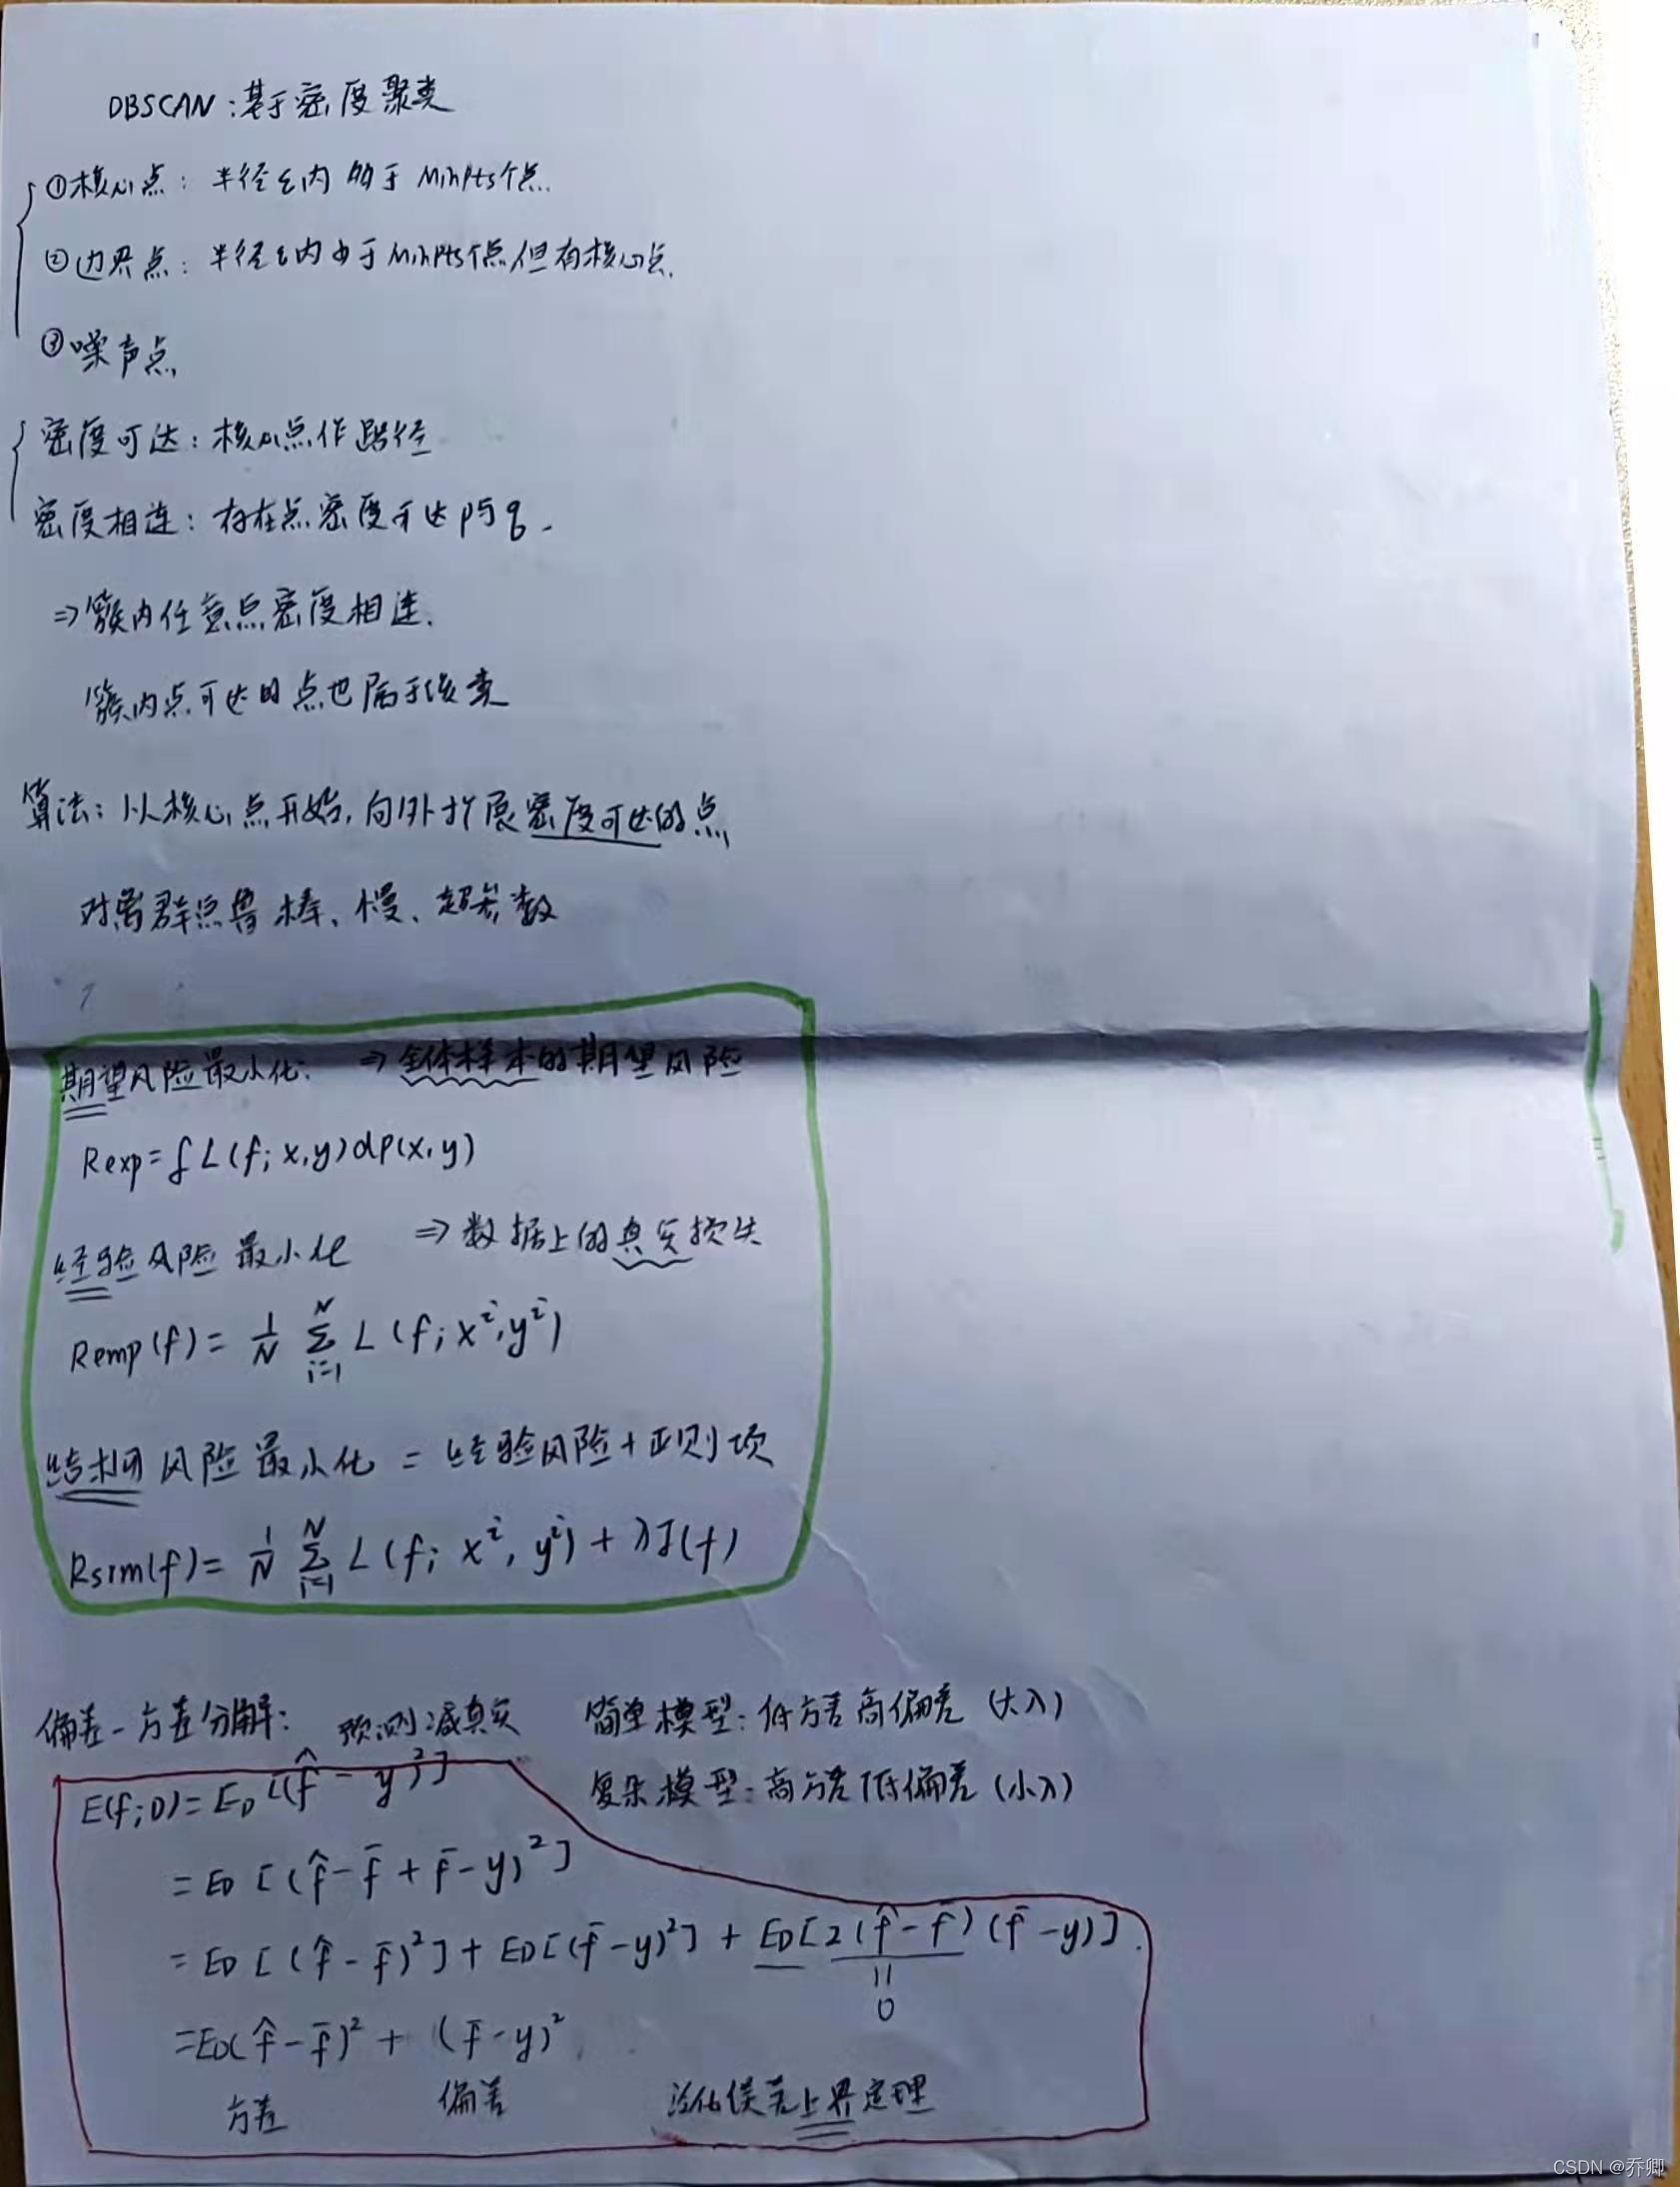 DBSCAN:基于密度聚类
①核心点: 半径ε内 多于 MinPts个点.
②边界点: 半径ε内少于MinPts个点但有核心点.
③噪声点
密度可达:核心点作路径
密度相连:存在点密度可达p与q.
⇒簇内任意点密度相连.
簇内点可达的点也属于该类
算法:从核心点开始,向外扩展密度可达的点
对离群点鲁棒、慢、超参数
期望风险最小化: ⇒ 全体样本的期望风险
Rexp=∫L(f;x,y)dp(x,y)
经验风险最小化 ⇒数据上的真实损失
Remp(f)= 1/N Σ_{i=1}^{N} L(f;x^i,y^i)
结构风险最小化 = 经验风险+正则项
Rsrm(f)= 1/N Σ_{i=1}^{N} L(f; x^i, y^i)+λJ(f)
偏差-方差分解: 预测减真实 简单模型:低方差高偏差(大λ)
E(f;D)=E_D[(f̂-y)^2] 复杂模型:高方差低偏差(小λ)
=E_D[(f̂-f̄+f̄-y)^2]
=E_D[(f̂-f̄)^2]+E_D[(f̄-y)^2]+E_D[2(f̂-f̄)(f̄-y)].
=
0
=E_D(f̂-f̄)^2+(f̄-y)^2
方差 偏差 泛化误差上界定理
CSDN @乔卿